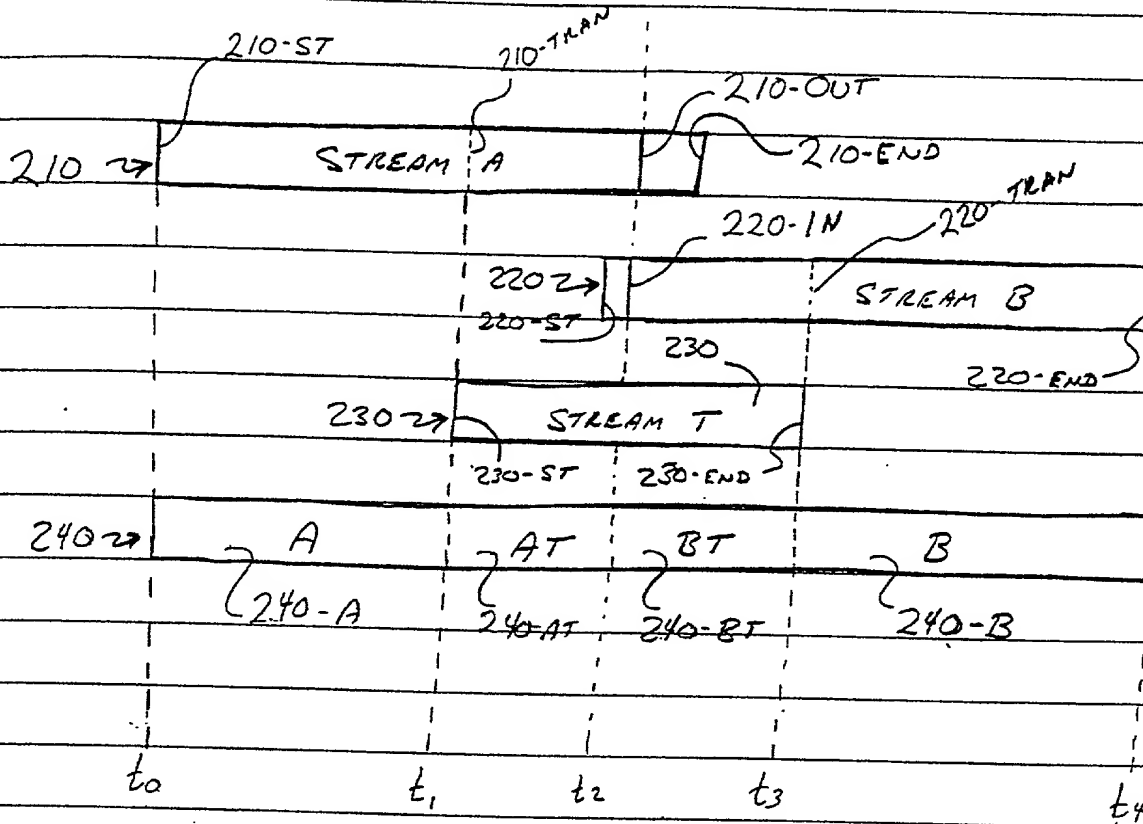 210-ST
210-TRAN
210-OUT
210 → STREAM A
210-END
220-TRAN
220-IN
220 → STREAM B
220-ST
230
220-END
230 → STREAM T
230-ST 230-END
240 → A AT BT B
240-A 240-AT 240-BT 240-B
t0 t1 t2 t3 t4